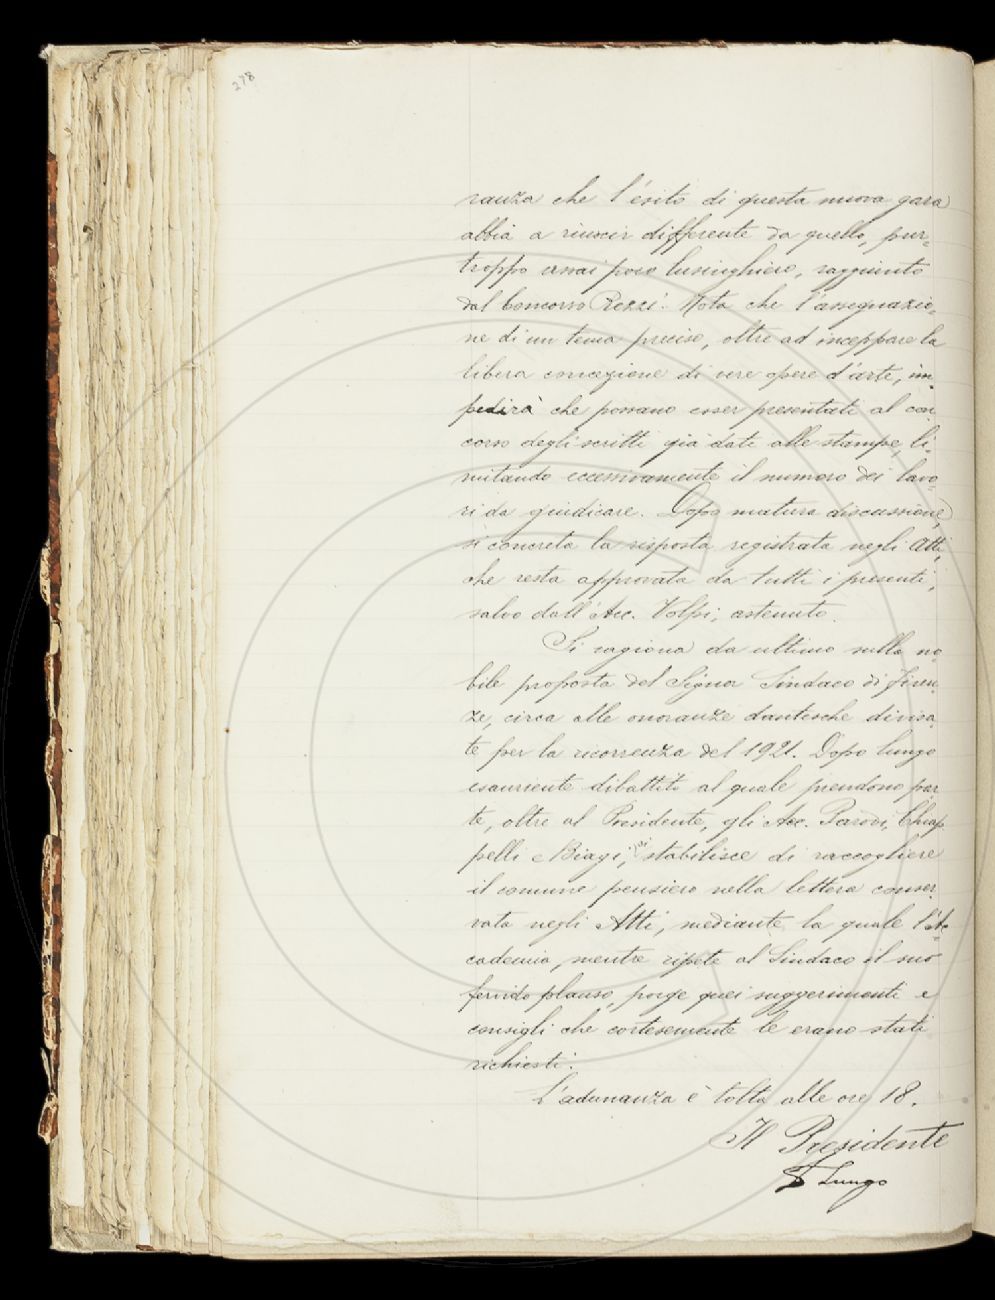 278
ranza che l'esito di questa nuova gara
abbia a riuscir differente da quello, pur=
troppo assai poco lusinghiero, raggiunto
dal Concorso Rezzi. Nota che l'assegnazio=
ne di un tema preciso, oltre ad inceppare la
libera concezione di vere opere d'arte, im=
pedirà che possano esser presentati al con
corso degli scritti già dati alle stampe, li=
mitando eccessivamente il numero dei lavo=
ri da giudicare. Dopo matura discussione
si concreta la risposta registrata negli Atti,
che resta approvata da tutti i presenti,
salvo dall'Acc. Volpi, astenuto.
Si ragiona da ultimo sulla no=
bile proposta del Signor Sindaco di Firen=
ze, circa alle onoranze dantesche divisa=
te per la ricorrenza del 1921. Dopo lungo
esauriente dibattito al quale prendono par
te, oltre al Presidente, gli Acc. Parodi, Chiap
pelli e Biagi, si stabilisce di raccogliere
il comune pensiero nella lettera conser
vata negli Atti, mediante la quale l'Ac=
cademia, mentre ripete al Sindaco il suo
fervido plauso, porge quei suggerimenti e
consigli che cortesemente le erano stati
richiesti.
L'adunanza è tolta alle ore 18.
Il Presidente
Lungo